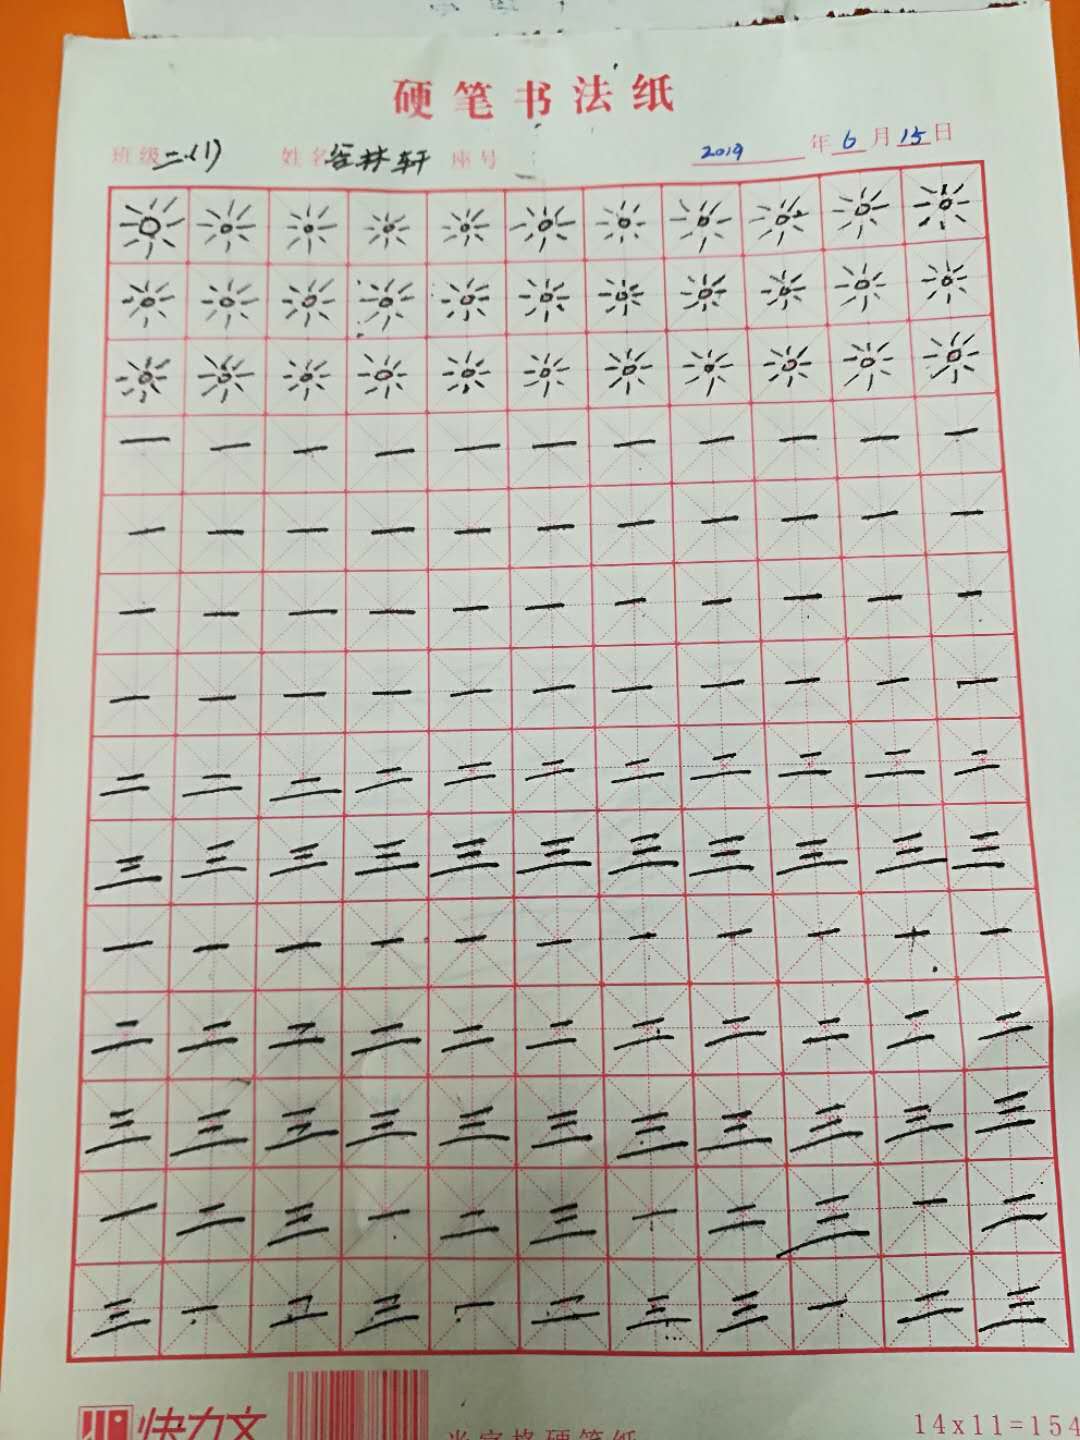 硬笔书法纸
班级 二(1) 姓名 谷林轩 座号 2019 年 6 月 15 日
一 一 一 一 一 一 一 一 一 一 一
一 一 一 一 一 一 一 一 一 一 一
一 一 一 一 一 一 一 一 一 一 一
一 一 一 一 一 一 一 一 一 一 一
二 二 二 二 二 二 二 二 二 二 二
三 三 三 三 三 三 三 三 三 三 三
一 一 一 一 一 一 一 一 一 一 一
二 二 二 二 二 二 二 二 二 二 二
三 三 三 三 三 三 三 三 三 三 三
一 二 三 一 二 三 一 二 三 一 二
三 一 二 三 一 二 三 三 一 二 三
快力文 米字格硬笔纸 14x11=154